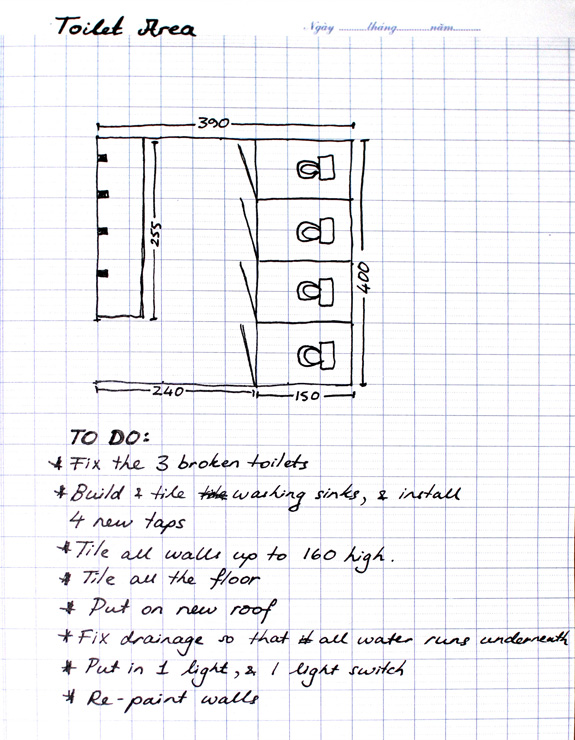 Toilet Area
Ngày ............tháng............năm............
390
255
400
240
150
TO DO:
* Fix the 3 broken toilets
* Build & tile washing sinks, & install
4 new taps
* Tile all walls up to 160 high.
* Tile all the floor
* Put on new roof
* Fix drainage so that all water runs underneath
* Put in 1 light, & 1 light switch
* Re-paint walls